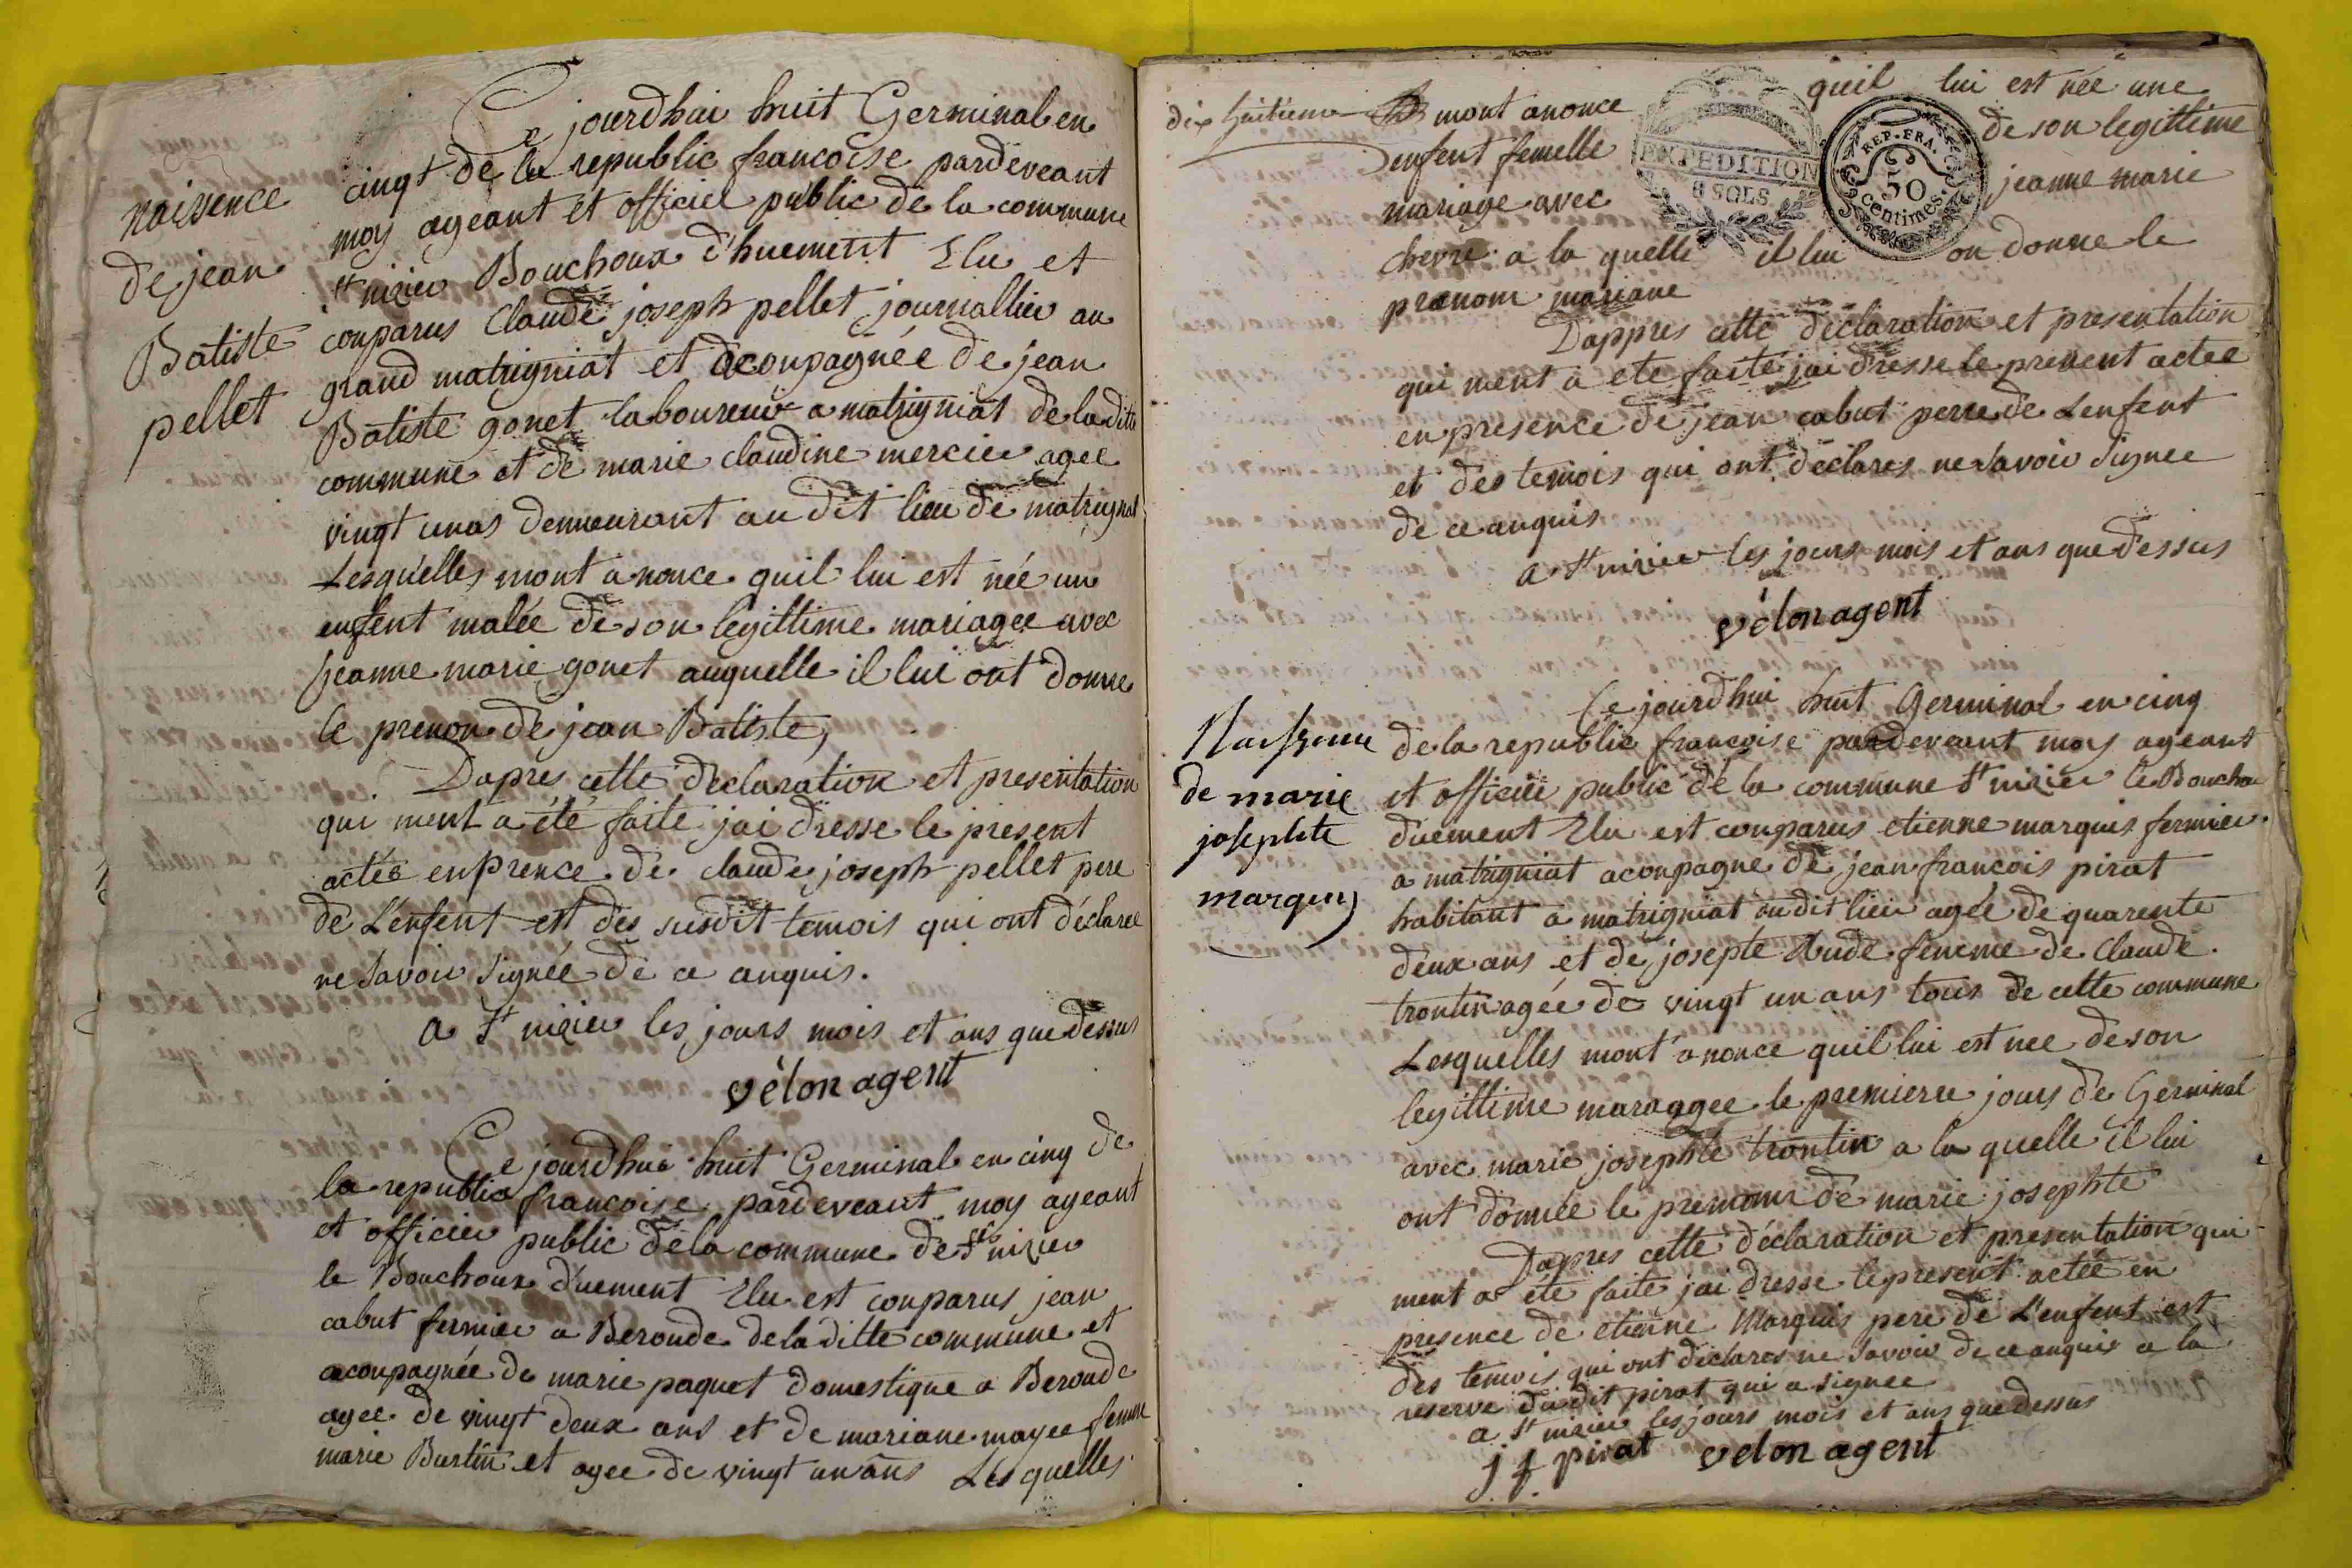 Ce jourdhui huit Germinal en
cinqt de la republic francoise pardeveant
moy ageant et officiel public de la commune
st nizier Bouchoux d'huement Elu et
conparus Claude joseph pellet journallier au
grand matrigniat et aconpagnée de jean
Batiste gonet laboureur a matrigniat de la dite
commune et de marie claudine mercier agee
vingt unas demeurant au dit lieu de matrignat
Lesquelles mont anonce quil lui est née un
enfent malée de son legittime mariagee avec
jeanne marie gonet auquelle il lui ont donne
le prenon de jean Batiste,
Dapres cette declaration et presentation
qui ment a été faite jai dresse le present
actée en Prence de claude joseph pellet pere
de L'enfent est des susdit temois qui ont déclaree
ne Savoir Signée de ce anquis.
a St nizier les jours mois et ans que dessus
vélon agent
naissence
de jean
Batiste
pellet
Ce jourdhui huit Germinal en cinq de
la republic francoise pardeveant moy ageant
et officier public de la commune de St nizier
le Bouchoux d'uement Elu est conparus jean
cabut fermier a Beronde de la ditte commune et
aconpagnée de marie paquet domestique a Beronde
agee de vingt deux ans et de mariane mayee femme
marie Burtin et agee de vingt un ans Les quelles
dix huitieme mont anonce quil lui est née une
enfent femelle de son legittime
mariage avec jeanne marie
chevre a la quelle il lui on donne le
prænom mariane
EXPEDITION
8 SOLS
REP. FRA.
50
centimes.
Dappres cette declaration et presentation
qui ment a ete faite jai dresse le present actee
en presence de jean cabut perre de Lenfent
et des temois qui ont declares ne Savoir Signee
de ce anquis
a St nizier les jours mois et ans que dessus
vélon agent
Naissence
de marie
josephte
marquis
Ce jourdhui huit Germinal en cinq
de la republic francoise pardeveant moy ageant
et officier public de la commune St nizier le Bouchou
duement Elu est conparus etienne marquis fermier
a matrigniat aconpagne de jean francois pirat
habitant a matrigniat audit lieu agée de quarente
deux ans et de josepte Rude femme de Claude
trontin agée de vingt un ans tous de cette commune
Lesquelles mont anonce quil lui est nee de son
legittime maraagee le premierre jours de Germinal
avec marie josephte trontin a la quelle il lui
ont donnée le prenom de marie josephte
Dapres cette déclaration et presentation qui
ment a été faite jai dresse le present actée en
presence de etienne Marquis pere de L'enfent est
des temois qui ont declares ne Savoir de ce anquis a la
reserve dudit pirat qui a signee
a St nizier les jours mois et ans que dessus
j f pirat velon agent